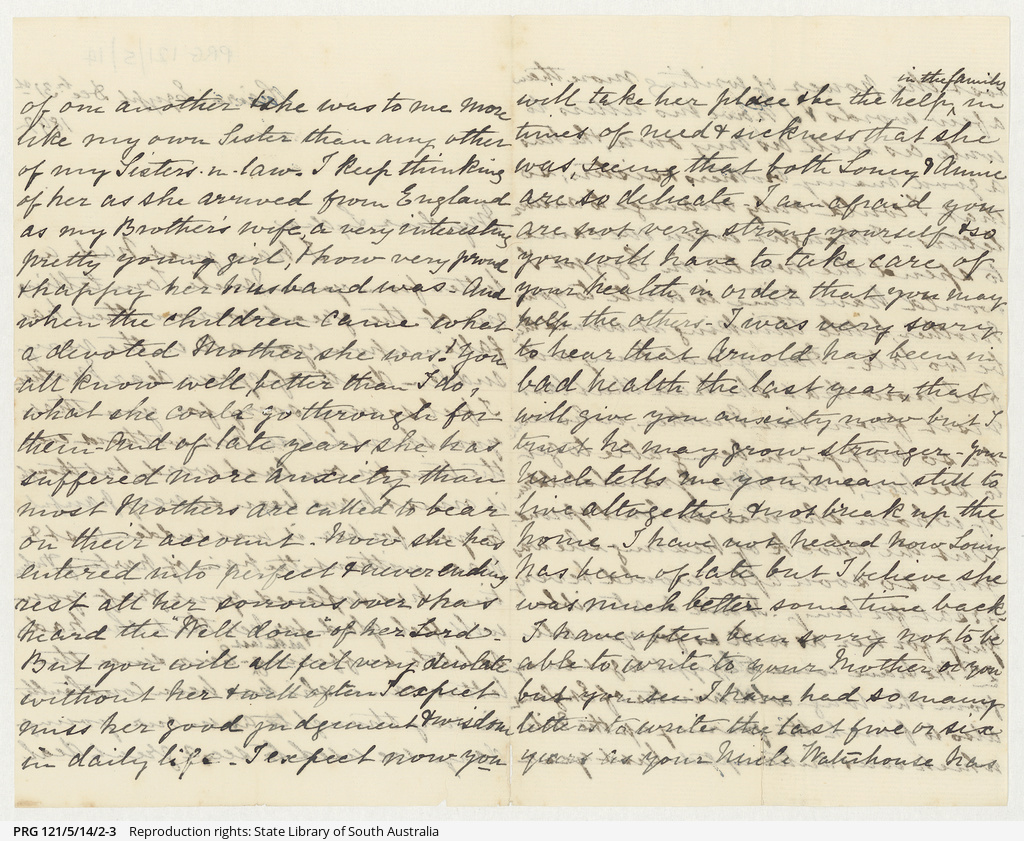 of one another & she was to me more
like my own Sister than any other
of my Sisters-n-law. I keep thinking
of her as she arrived from England
as my Brother's wife, a very interesting
pretty young girl, & how very proud
& happy her husband was. And
when the children came what
a devoted Mother she was! You
all know well, better than I do,
what she could go through for
them. And of late years she has
suffered more anxiety than
most Mothers are called to bear
on their account. Now she has
entered into perfect & never ending
rest all her sorrows over & has
heard the "Well done" of her Lord.
But you will all feel very desolate
without her & will often I expect
miss her good judgement & wisdom
in daily life. I expect now you
in the family
will take her place & be the help, in
times of need & sickness that she
was, seeing that both & Annie
are so delicate. I am afraid you
are not very strong yourself & so
you will have to take care of
your health in order that you may
help the others. I was very sorry
to hear that Arnold has been in
bad health the last year, that
will give you anxiety now but I
trust he may grow stronger. Your
Uncle tells me you mean still to
live altogether & not break up the
home. I have not heard how
has been of late but I believe she
was much better some time back.
I have often been sorry not to be
able to write to your Mother or you
but you see I have had so many
letters to write the last five or six
years as your Uncle Waterhouse has
PRG 121/5/14/2-3 Reproduction rights: State Library of South Australia